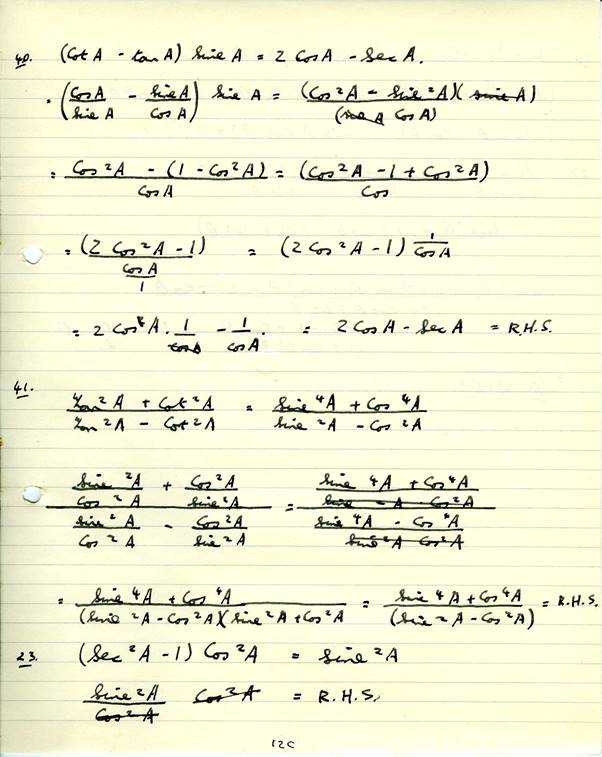 40. (Cot A - tan A) Sine A = 2 Cos A - Sec A.
. (Cos A / Sine A - Sine A / Cos A) Sine A = (Cos ²A - Sine ²A)(Sine A) / (Sine A Cos A)
= Cos ²A - (1 - Cos ²A) / Cos A = (Cos ²A - 1 + Cos ²A) / Cos
= (2 Cos ²A - 1) / Cos A / 1 = (2 Cos ²A - 1) 1 / Cos A
= 2 Cos ²A . 1 / Cos A - 1 / Cos A . = 2 Cos A - Sec A = R.H.S.
41. Tan ²A + Cot ²A / Tan ²A - Cot ²A = Sine ⁴A + Cos ⁴A / Sine ²A - Cos ²A
Sine ²A / Cos ²A + Cos ²A / Sine ²A / Sine ²A / Cos ²A - Cos ²A / Sine ²A = Sine ⁴A + Cos ⁴A / Sine ²A Cos ²A / Sine ⁴A - Cos ⁴A / Sine ²A Cos ²A
= Sine ⁴A + Cos ⁴A / (Sine ²A - Cos ²A)(Sine ²A + Cos ²A = Sine ⁴A + Cos ⁴A / (Sin ²A - Cos ²A) = R.H.S.
23. (Sec ²A - 1) Cos ²A = Sine ²A
Sine ²A / Cos ²A Cos ²A = R.H.S.
12C